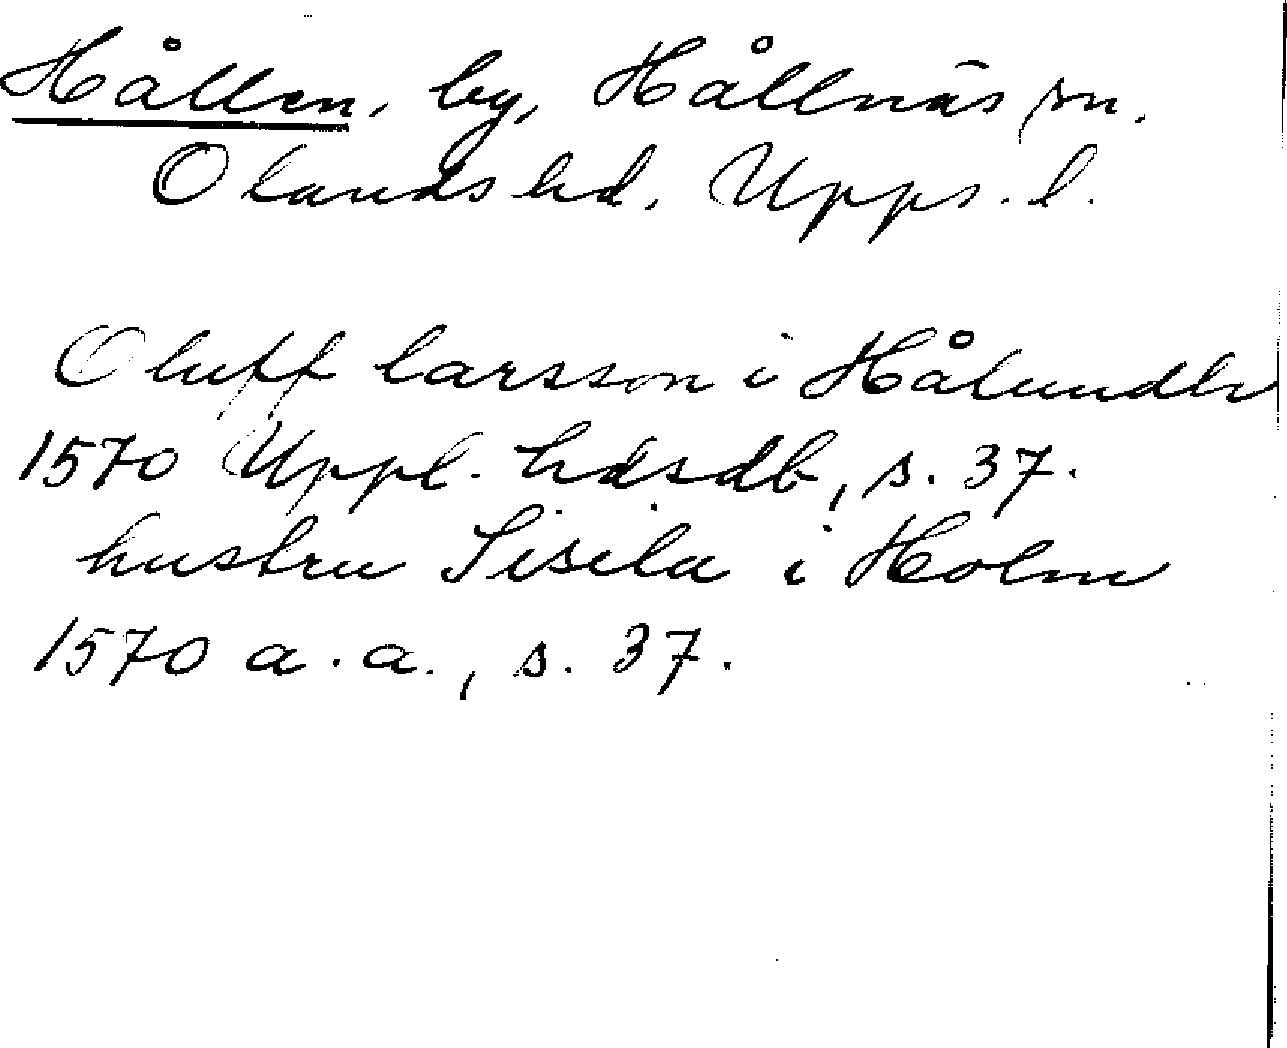 Hållen, by, Hållnäs sn.
Olands hd, Upps. l.
Oluff larsson i
1570 Uppl. hdsdb, s. 37.
hustru Sisela i Holm
1570 a.a., s. 37.